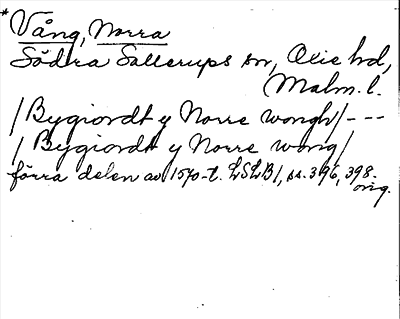 * Vång, Norra
Södra Sallerups sn, Oxie hd,
Malm. l.
/ Bygiordt y Norre wongh / ---
/ Bygiordt y Norre wong /
förra delen av 1570-t. LSLB 1, ss. 396, 398.
orig.